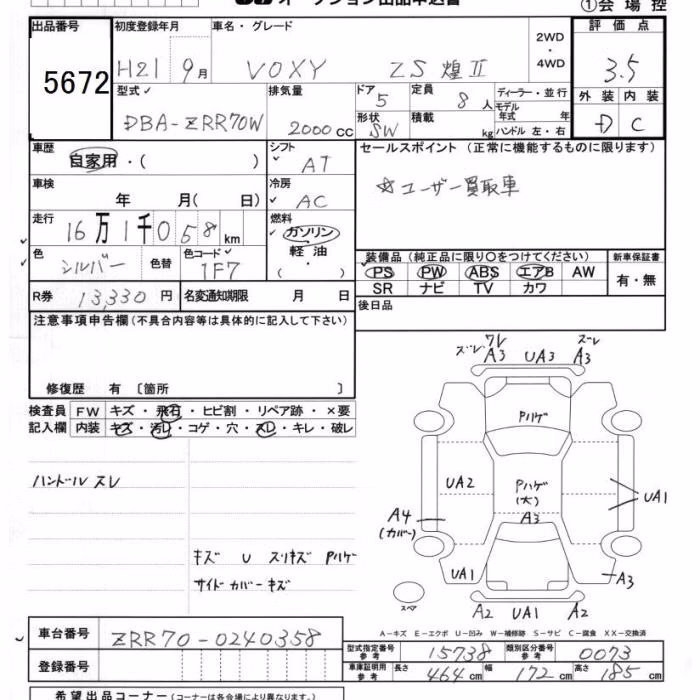 オークション出品申込書
①会場控
出品番号 初度登録年月 車名・グレード 2WD・4WD 評価点
5672 H21 9月 VOXY ZS 煌II 3.5
型式 排気量 ドア 5 定員 8人 ディーラー・並行 外装 内装
DBA-ZRR70W 2000cc 形状 SW 積載 kg モデル年式 年 ハンドル 左・右 D C
車歴 自家用・( ) シフト AT セールスポイント (正常に機能するものに限ります)
車検 年 月(日) 冷房 AC ☆ユーザー買取車
走行 16万1千058km 燃料 ガソリン・軽油・( )
色 シルバー 色替 色コード 1F7
装備品 (純正品に限り○をつけてください) 新車保証書
PS PW ABS エアB AW 有・無
SR ナビ TV カワ
R券 13,330円 名変通知期限 月 日 後日品
注意事項申告欄 (不具合内容等は具体的に記入して下さい)
修復歴 有 〔箇所 〕
検査員 FW キズ・飛石・ヒビ割・リペア跡・×要
記入欄 内装 キズ・汚レ・コゲ・穴・スレ・キレ・破レ
ハンドル スレ
キズ U スリキズ Pハゲ
サイドカバーキズ
ズレ ワレ A3 UA3 ズレ A3
Pハゲ
UA2 Pハゲ (大) UA1
A4 (カバー) A3
UA1 A3
スペア A2 UA1 A2
A-キズ E-エクボ U-凹み W-補修跡 S-サビ C-腐食 XX-交換済
車台番号 ZRR70-0240358
登録番号
型式指定番号 参考 15738 類別区分番号 参考 0073
車庫証明用 参考 長さ 464cm 幅 172cm 高さ 185cm
希望出品コーナー (コーナーは各会場により異なります。)